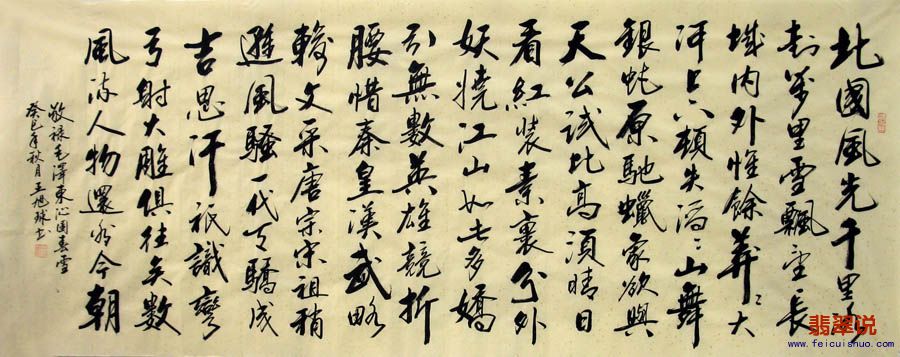 北國風光千里冰
封萬里雪飄望長
城内外惟餘莽〻大
河上下頓失滔〻山舞
銀蛇原馳蠟象欲與
天公試比高須晴日
看紅裝素裹分外
妖嬈江山如此多嬌
引無數英雄競折
腰惜秦皇漢武略
輸文采唐宗宋祖稍
遜風騷一代天驕成
吉思汗祇識彎
弓射大雕俱往矣數
風流人物還看今朝
敬録毛澤東沁園春雪
癸巳年秋月王旭球書
翡翠说
www.feicuishuo.com